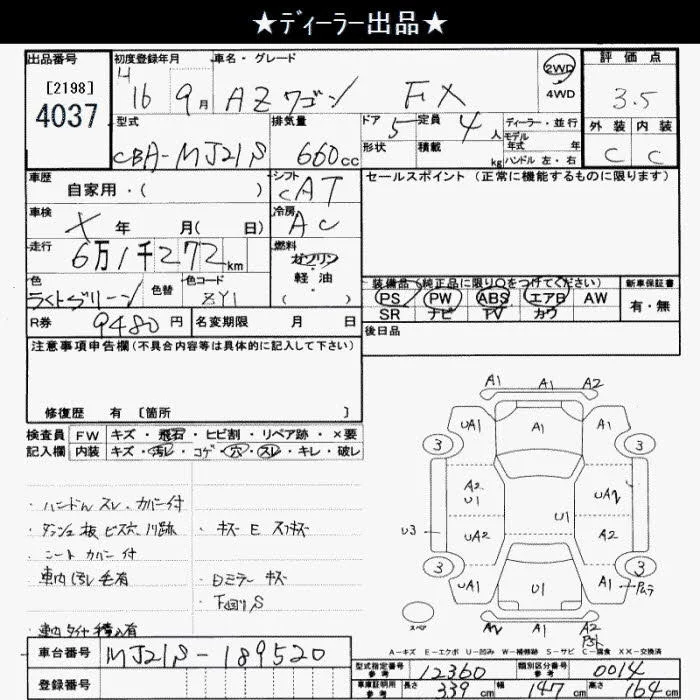 ★ディーラー出品★
出品番号
[2198]
4037
初度登録年月
H
16 9月
車名・グレード
AZワゴン FX
2WD
4WD
評価点
3.5
型式
CBA-MJ21S
排気量
660cc
ドア 5
形状
定員 4人
積載 kg
ディーラー・並行
モデル年式 年
ハンドル 左・右
外装 内装
C C
車歴
自家用・( )
シフト
CAT
セールスポイント (正常に機能するものに限ります)
車検
X 年 月( 日)
冷房
AC
走行
6万1千272km
燃料
ガソリン
・
軽油
( )
色
ライトグリーン
色替
色コード
ZY1
装備品(純正品に限り○をつけてください)
PS PW ABS エアB AW
SR ナビ TV カワ
新車保証書
有・無
R券 9480円
名変期限 月 日
後日品
注意事項申告欄(不具合内容等は具体的に記入して下さい)
修復歴 有 [箇所 ]
検査員
記入欄
FW キズ・飛石・ヒビ割・リペア跡・×要
内装 キズ・汚レ・コゲ・穴・スレ・キレ・破レ
・ハンドルスレ・カバー付
・ダッシュ板ビス穴、リ跡
・キズ E スリキズ
・シートカバー付
・車内汚レ毛有
・Bミラーキズ
下回りS
・車内タイヤ積込有
A1 A1 A2
UA1 A1 A1
3 3
A2
U1
UA2
U1
U3 UA2 A2
3 3
UA1 U1 A1
A1 A2
スペア
A-キズ E-エクボ U-凹み W-補修跡 S-サビ C-腐食 XX-交換済
車台番号 MJ21S-189520
登録番号
型式指定番号
参考
12360
類別区分番号
参考
0014
車庫証明用
参考
長さ 339cm
幅 147cm
高さ 164cm